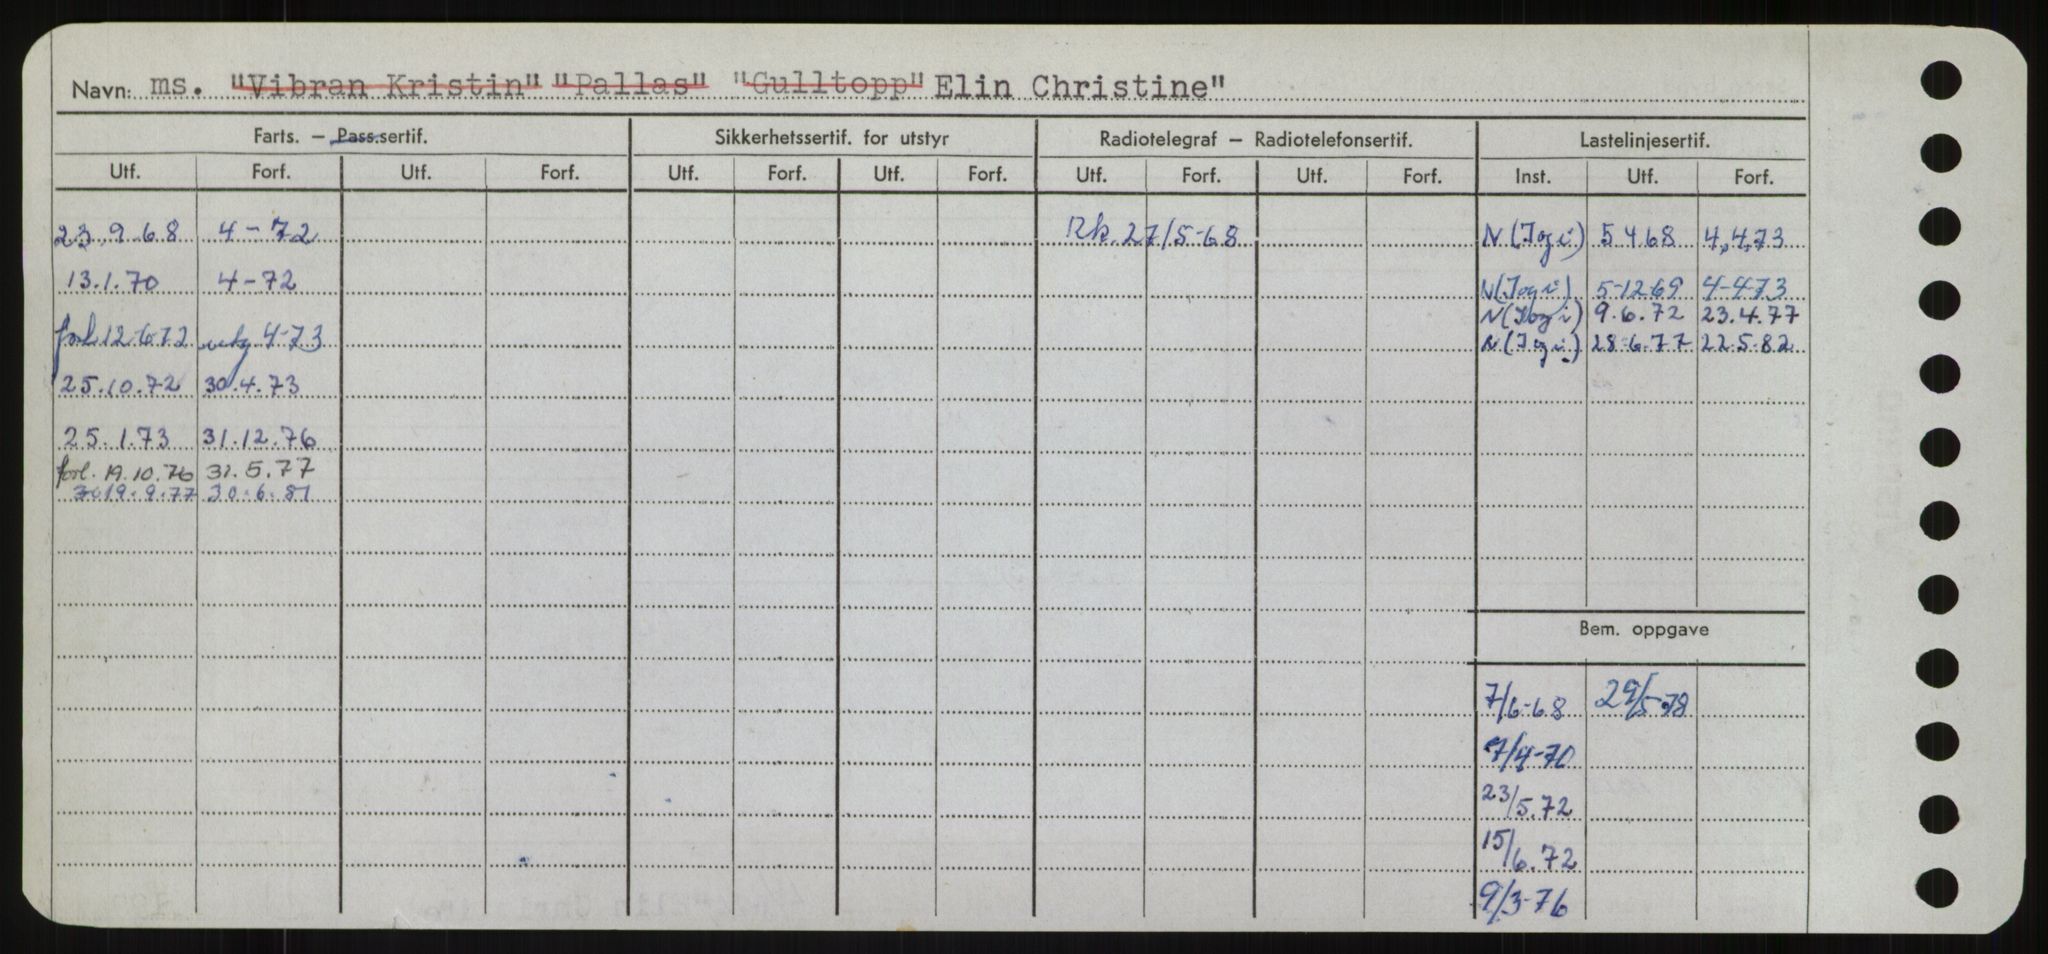 Navn: ms. "Vibran Kristin" "Pallas" "Gulltopp" Elin Christine"
Farts. — Pass.sertif. Sikkerhetssertif. for utstyr Radiotelegraf — Radiotelefonsertif. Lastelinjesertif.
Utf. Forf. Utf. Forf. Utf. Forf. Utf. Forf. Utf. Forf. Utf. Forf. Inst. Utf. Forf.
23.9.68 4-72 Rk. 27/5-68 N (Jogi) 5 4 68 4,4,73
13.1.70 4-72 N (Jogi) 5-12-69 4-4-73
N (Jogi) 9.6.72 23.4.77
forl 12-6-72 utg 4-73 N (Jogi) 28-6-77 22.5.82
25.10.72 30.4.73
25.1.73 31.12.76
forl. 19.10.76 31.5.77
19.9.77 30.6.81
Bem. oppgave
7/6-68 29/5-78
7/4-70
23/5.72
15/6.72
9/3-76